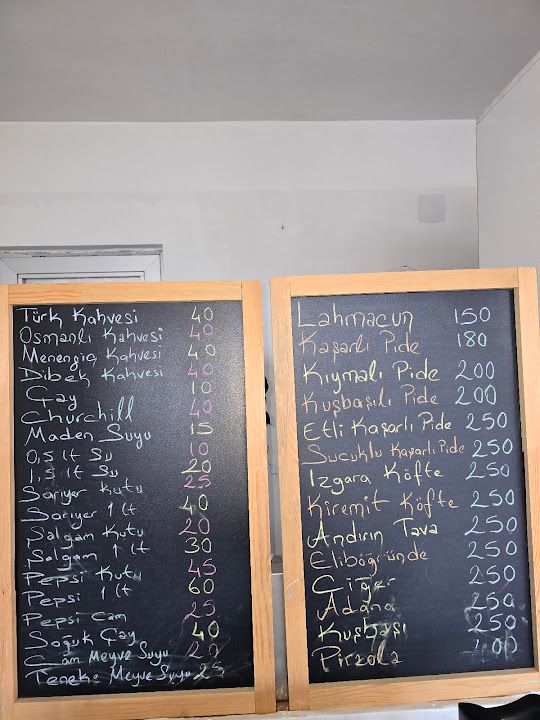 Türk Kahvesi 40
Osmanlı Kahvesi 40
Menengiç Kahvesi 40
Dibek Kahvesi 40
Çay 10
Churchill 40
Maden Suyu 15
0,5 lt Su 10
1,5 lt Su 20
Sarıyer Kutu 25
Sarıyer 1 lt 40
Şalgam Kutu 20
Şalgam 1 lt 30
Pepsi Kutu 45
Pepsi 1 lt 60
Pepsi cam 25
Soğuk Çay 40
Cam Meyve Suyu
Teneke Meyve Suyu 25
Lahmacun 150
Kaşarlı Pide 180
Kıymalı Pide 200
Kuşbaşılı Pide 200
Etli Kaşarlı Pide 250
Sucuklu Kaşarlı Pide 250
Izgara Köfte 250
Kiremit Köfte 250
Andırın Tava 250
Eliböğründe 250
Ciğer 250
Adana 250
Kuşbaşı 250
Pirzola